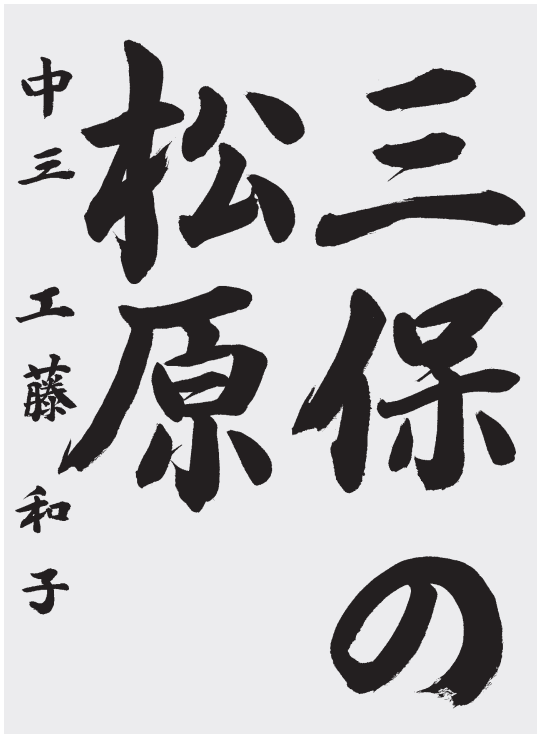 三保の
松原
中三 工藤和子